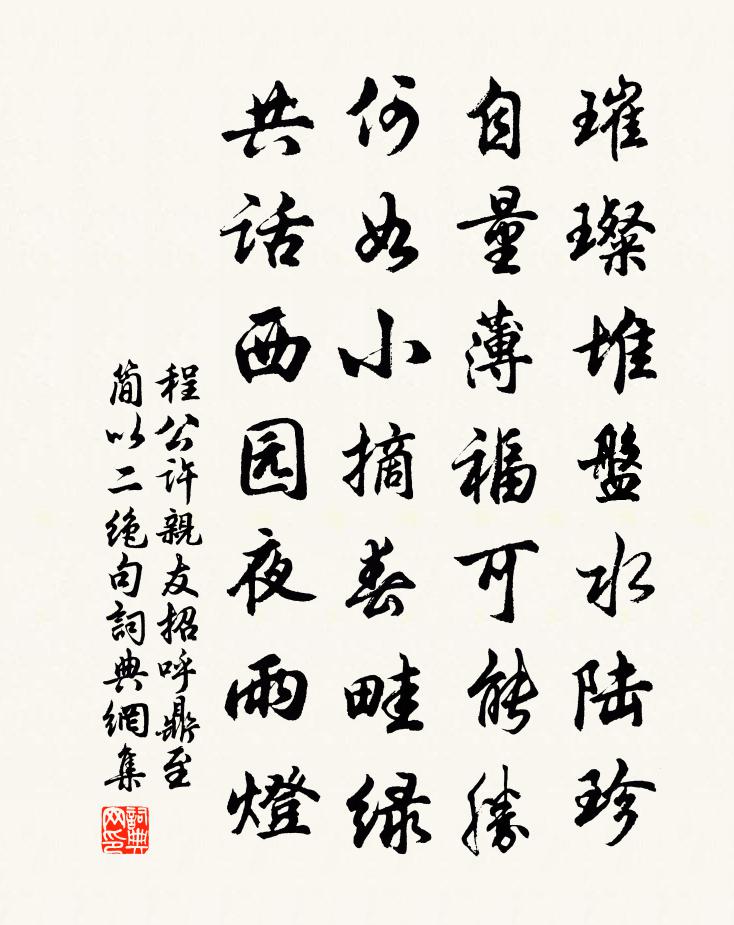 璀璨堆盤水陆珍
自量薄福可能勝
何如小摘春畦绿
共话西园夜雨燈
程公许親友招呼鼎至
简以二绝句詞典網集
詞典网印